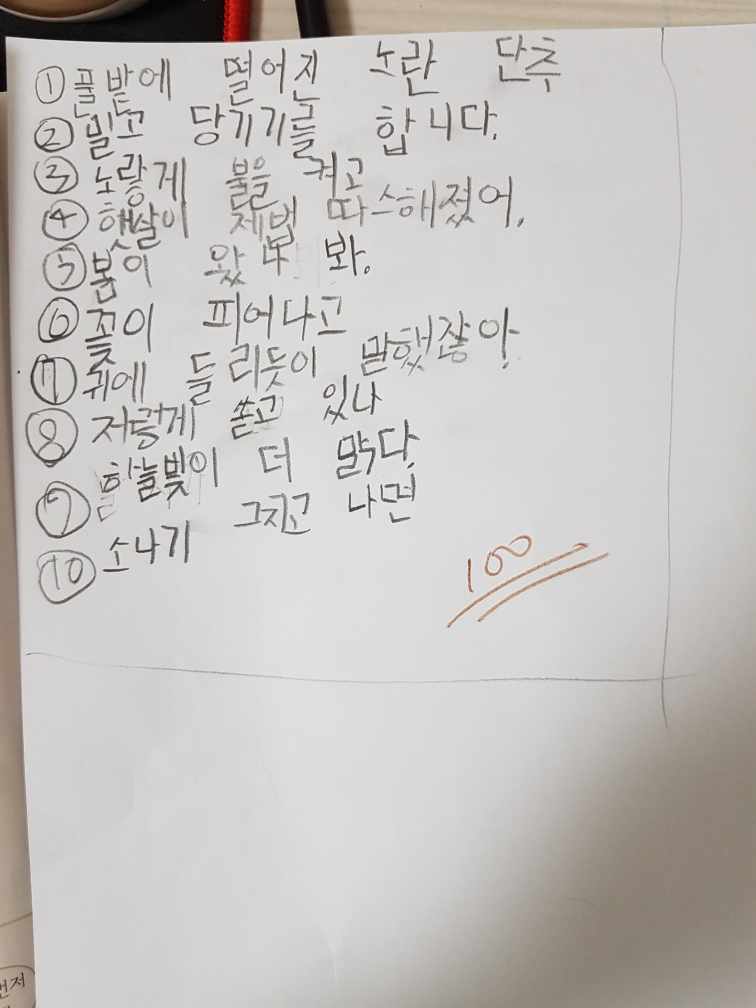 ① 풀밭에 떨어진 노란 단추
② 밀고 당기기를 합니다.
③ 노랗게 불을 켜고
④ 햇살이 제법 따스해졌어.
⑤ 봄이 왔나 봐.
⑥ 꽃이 피어나고
⑦ 귀에 들리듯이 말했잖아.
⑧ 저렇게 쏟고 있나
⑨ 하늘빛이 더 맑다.
⑩ 소나기 그치고 나면
100
먼저